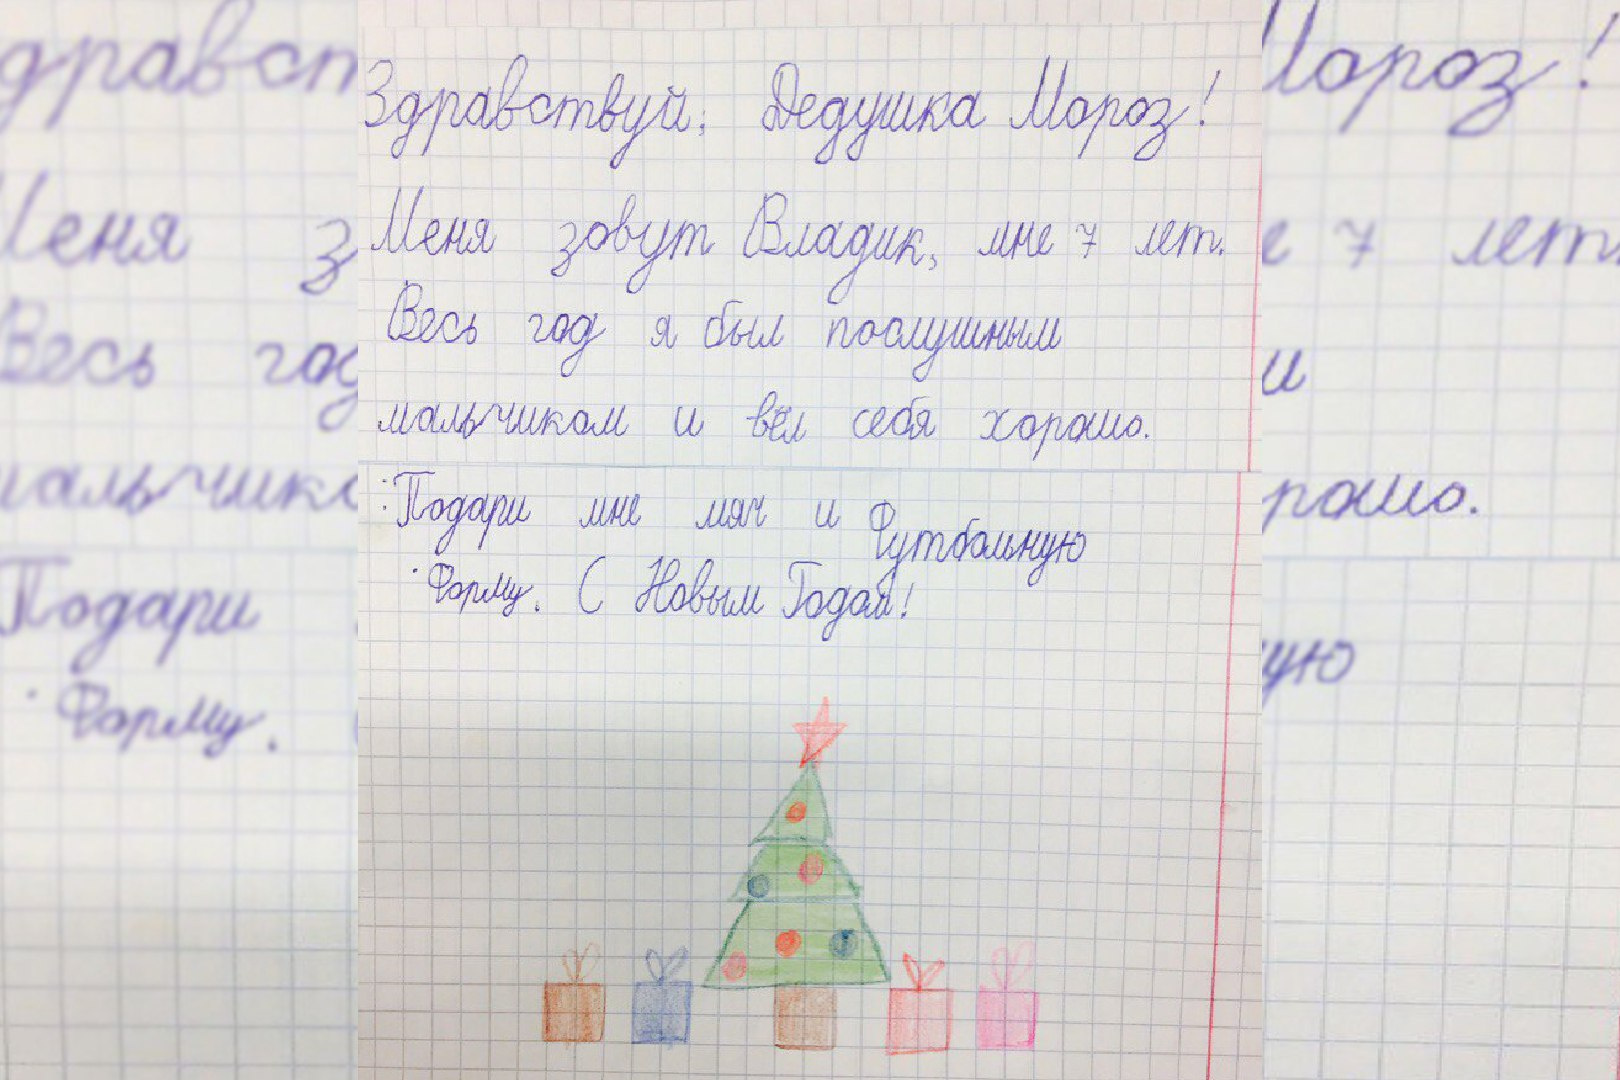 Здравствуй, Дедушка Мороз!
Меня зовут Владик, мне 7 лет.
Весь год я был послушным
мальчиком и вёл себя хорошо.
Подари мне мяч и Футбольную
Форму. С Новым Годом!